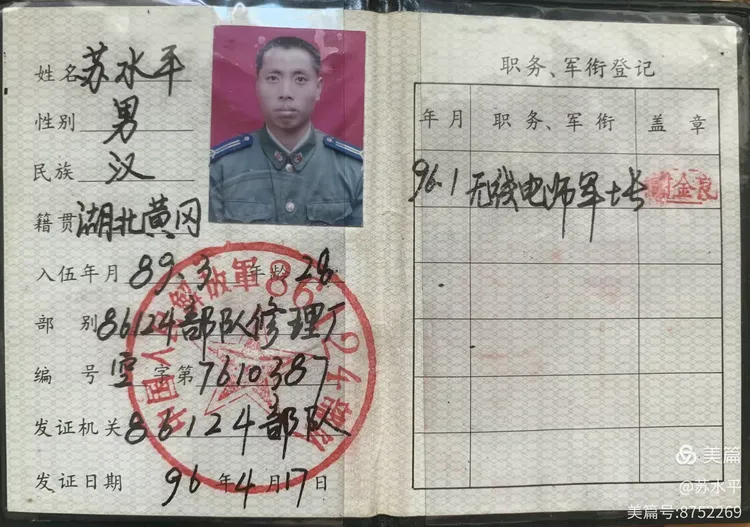 姓名 苏水平
性别 男
民族 汉
籍贯 湖北黄冈
入伍年月 89.3 年龄 28
部别 86124部队修理厂
编号 空字第7610387
发证机关 86124部队
发证日期 96年4月17日
中国人民解放軍86124部队
职务、军衔登记
年月 职务、军衔 盖章
96.1 无线电师军士长 金良
美篇
@苏水平
美篇号:8752269